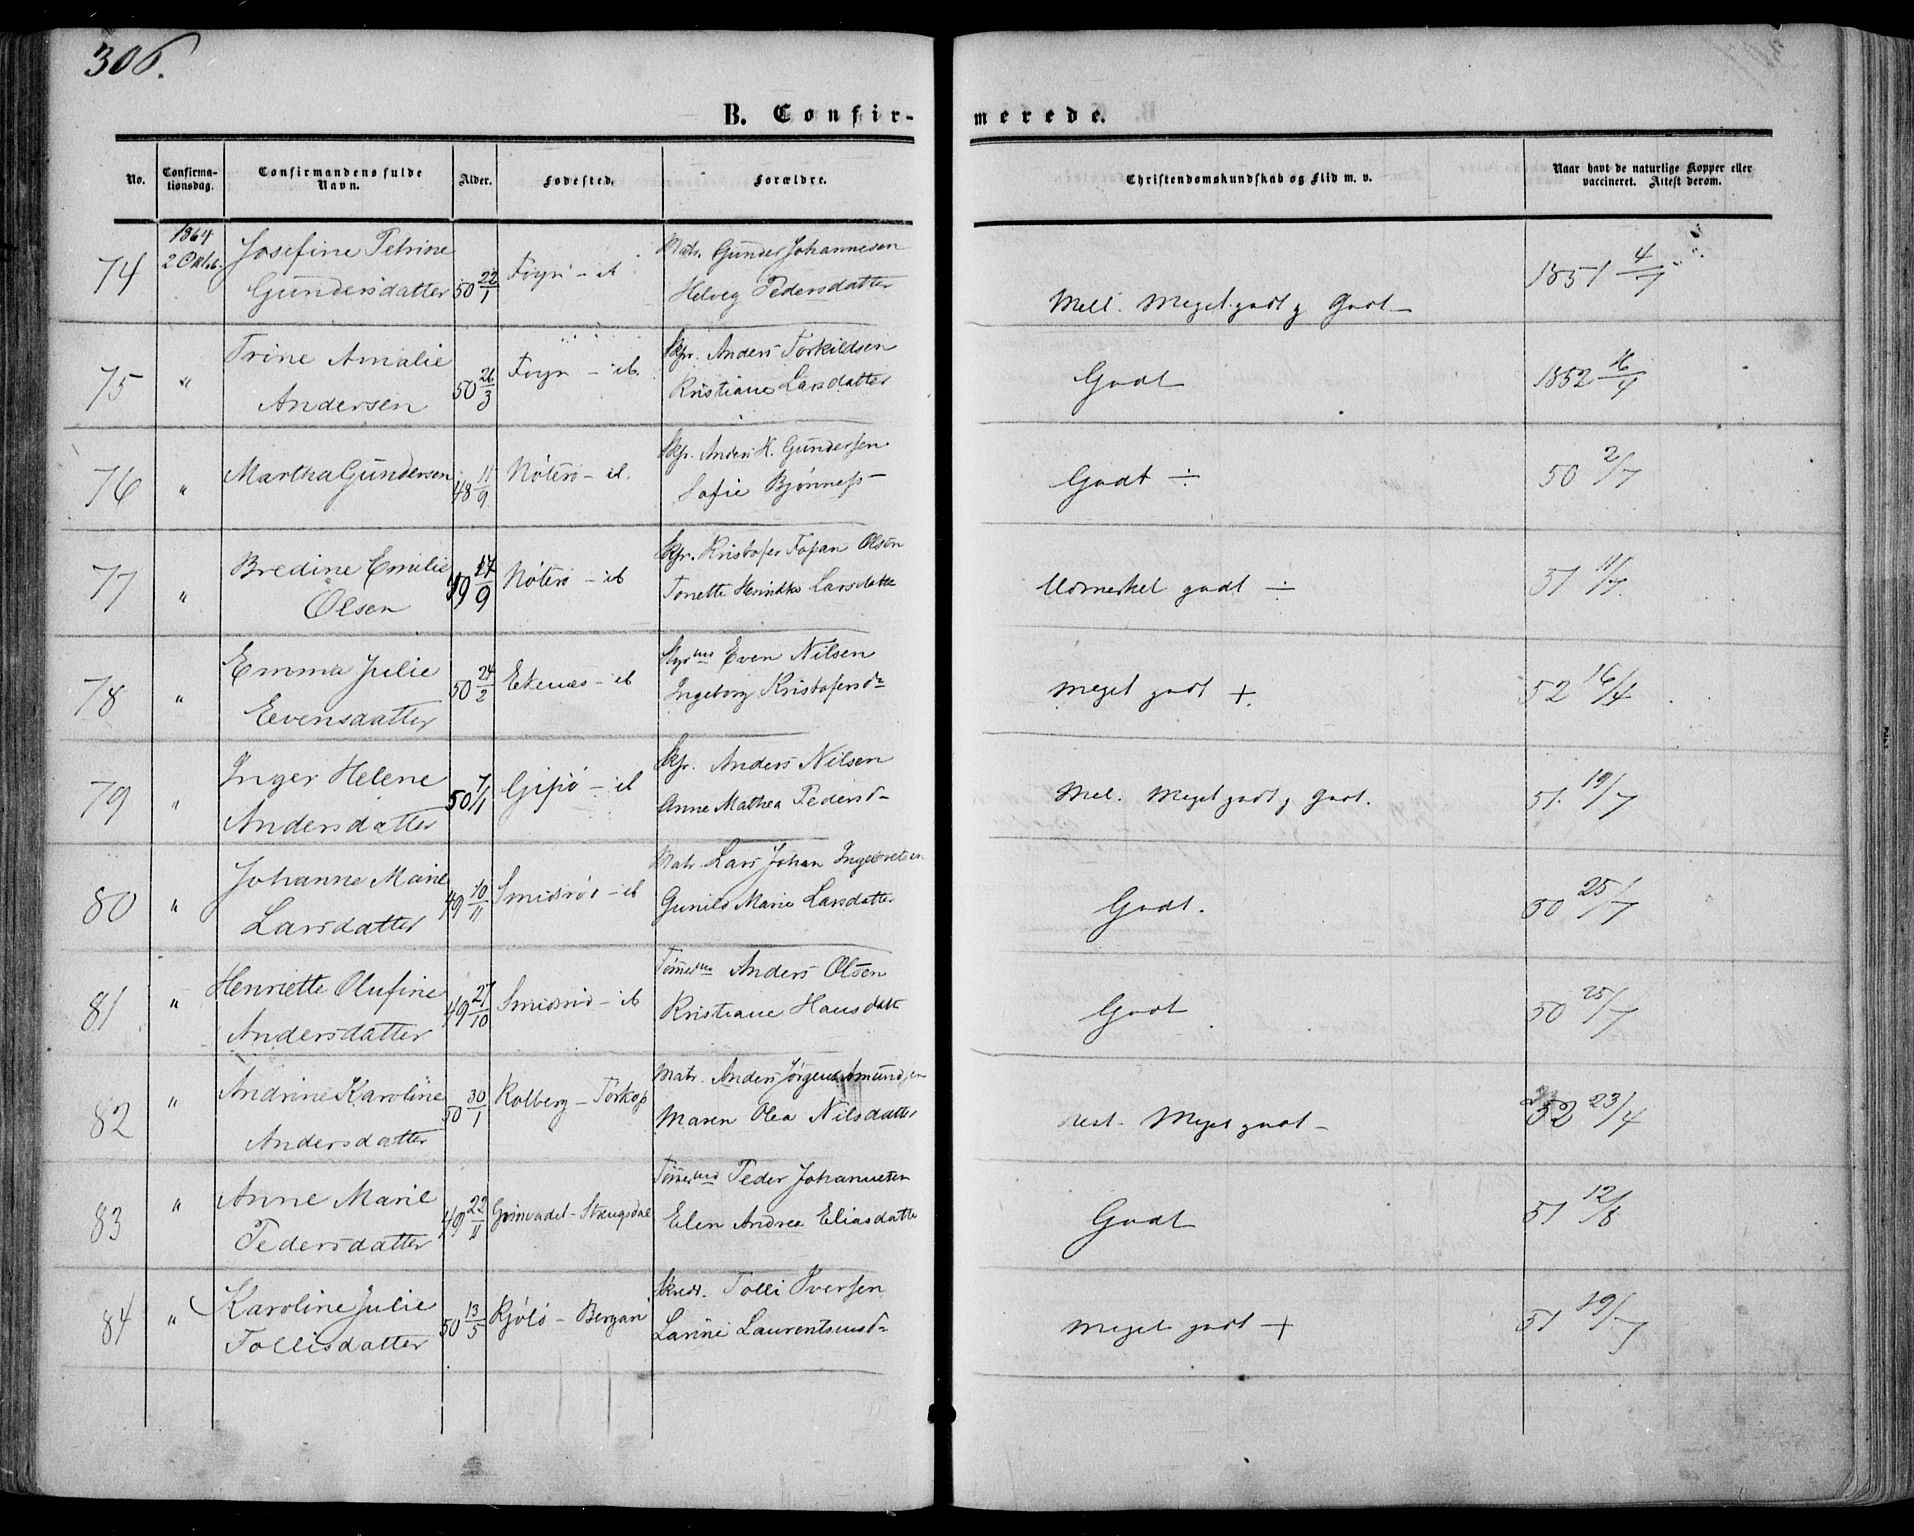 306.
B. Confirmerede.
No. Confirmationsdag. Confirmandens fulde Navn. Alder. Fødested. Forældre. Christendomskundskab og Flid m. v. Naar havt de naturlige Kopper eller vaccineret. Attest derom.
74 1864 2 Oktb. Josefine Petrine Gundersdatter 50 22/1 Føyn - ib Matr. Gunder Johannesen Helveg Pedersdatter Mell. Meget godt og Godt 1851 4/7
75 " Trine Amalie Andersen 50 26/3 Føyn - ib. Skpr. Anders Torkildsen Kristiane Larsdatter Godt 1852 16/4
76 " Martha Gundersen 48 11/9 Nøterø - ib. Skpr. Anders H. Gundersen Sofie Bjønness Godt ÷ 50 2/7
77 " Bredine Emilie Olsen 49 17/9 Nøterø - ib Skpr. Kristofer Olsen Tonette Larsdatter Udmerket godt ÷ 51 11/7
78 " Emma Julie Evensdatter 50 24/2 Ekenæs - ib Even Nilsen Ingeborg Kristofersd meget godt + 52 16/4
79 " Inger Helene Andersdatter 50 7/1 Gipø - ib Skpr. Anders Nilsen Anne Mathea Pedersd Mel. Meget godt og Godt. 51. 19/7
80 " Johanne Marie Larsdatter 49 10/11 Smidsrød - ib Matr. Lars Johan Ingebretsen Gunild Marie Larsdatter Godt. 50 25/7
81 " Henriette Olufine Andersdatter 49 27/10 Smidsrød - ib Anders Olsen Kristiane Hansdatt Godt 50 25/7
82 " Andrine Karoline Andersdatter 50 30/1 Kolberg - Torkop Matr. Anders Jørgen Amundsen Maren Olea Nilsdatter Meget godt - 52 23/4
83 " Anne Marie Pedersdatter 49 22/11 Peder Johannesen Elen Andrea Eliasdatte Godt 51 12/8
84 " Karoline Julie Tollisdatter 50 13/5 Kjøle - Bergan Tolli Iversen Larine Laurentsensd meget godt + 51 19/7